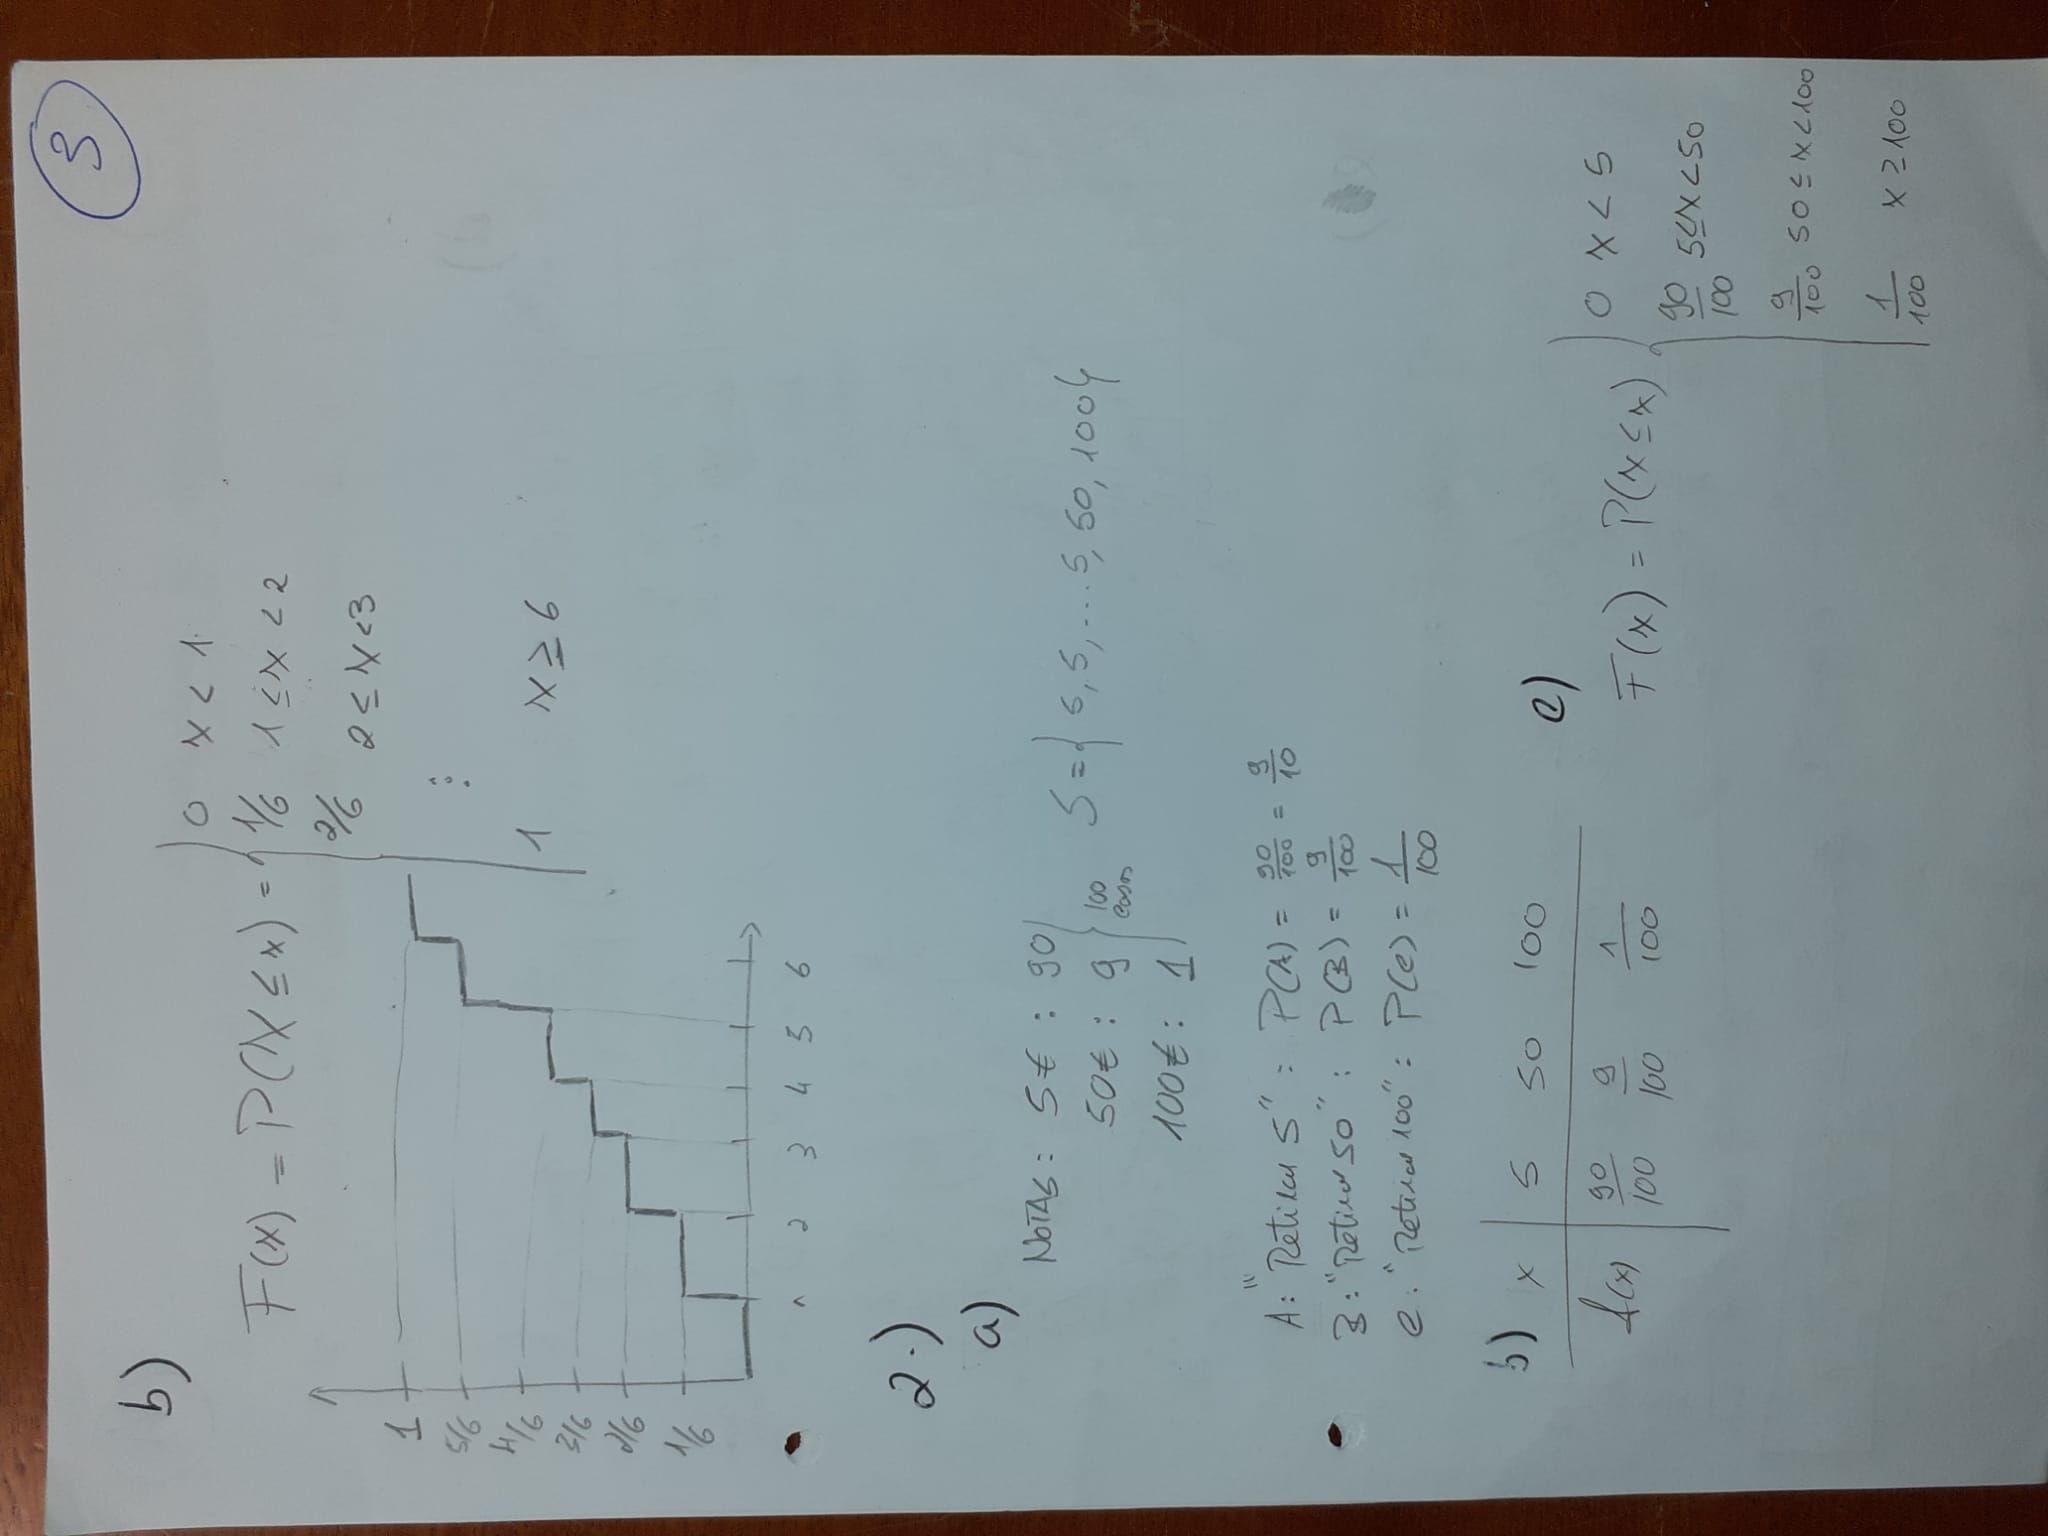 3
b)
F(x) = P(X ≤ x) = {
0 x < 1
1/6 1 ≤ x < 2
2/6 2 ≤ x < 3
⋮
1 x ≥ 6
1
5/6
4/6
3/6
2/6
1/6
1 2 3 4 5 6
2.)
a)
NOTAS: 5€ : 90
50€ : 9
100€ : 1
} 100
casos
S = { 5, 5, ... 5, 50, 100 }
A: "Retirar 5" : P(A) = 90/100 = 9/10
B: "Retirar 50" : P(B) = 9/100
C: "Retirar 100" : P(C) = 1/100
b) x | 5 50 100
f(x) | 90/100 9/100 1/100
c)
F(x) = P(X ≤ x) {
0 x < 5
90/100 5 ≤ x < 50
9/100 50 ≤ x < 100
1/100 x ≥ 100